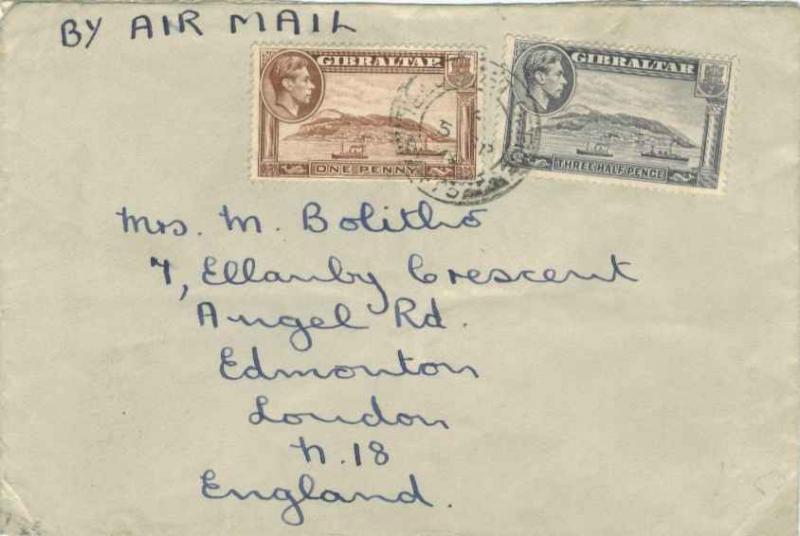 BY AIR MAIL
GIBRALTAR
ONE PENNY
GIBRALTAR
THREE HALF PENCE
Mrs. M. Bolitho
7, Ellanby Crescent
Angel Rd.
Edmonton
London
N.18
England.